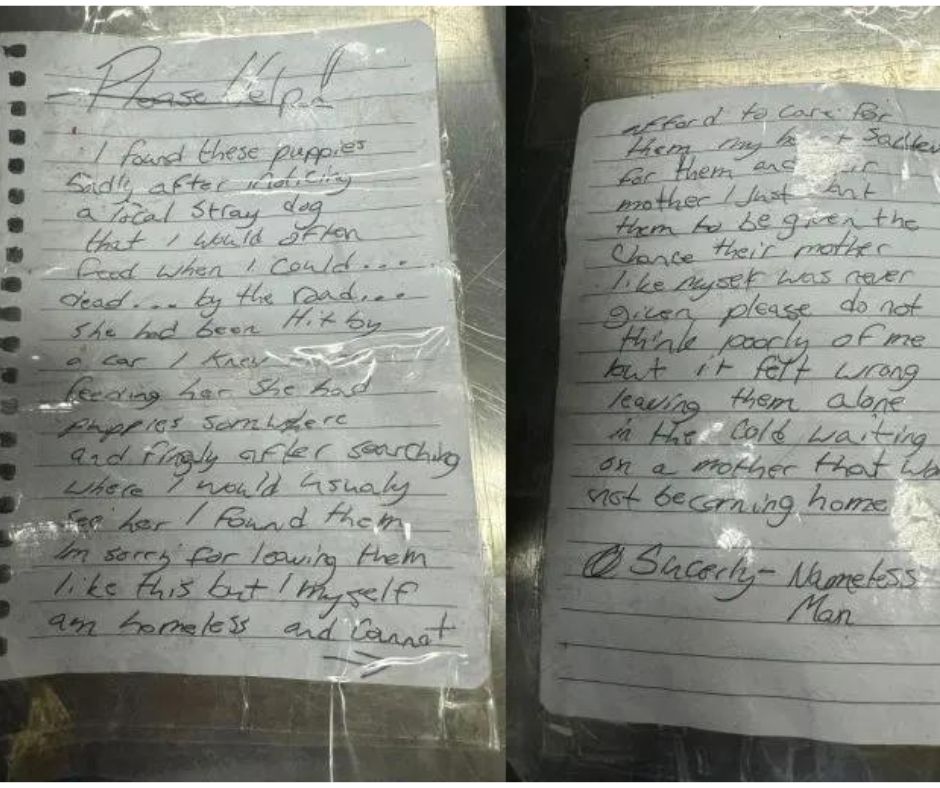 Please Help!
I found these puppies
Sadly after noticing
a local stray dog
that I would often
feed when I could...
dead... by the road...
she had been Hit by
a car I knew
feeding her she had
puppies somwhere
and finaly after searching
where I would usualy
see her I found them
Im sorry for leaving them
like this but I myself
am homeless and Cannot
afford to care for
them my
for them and
mother I Just
them to be given the
Chance their mother
like myself was never
given please do not
think poorly of me
but it felt wrong
leaving them alone
in the Cold waiting
on a mother that
not becoming home
Sincerly- Nameless
Man